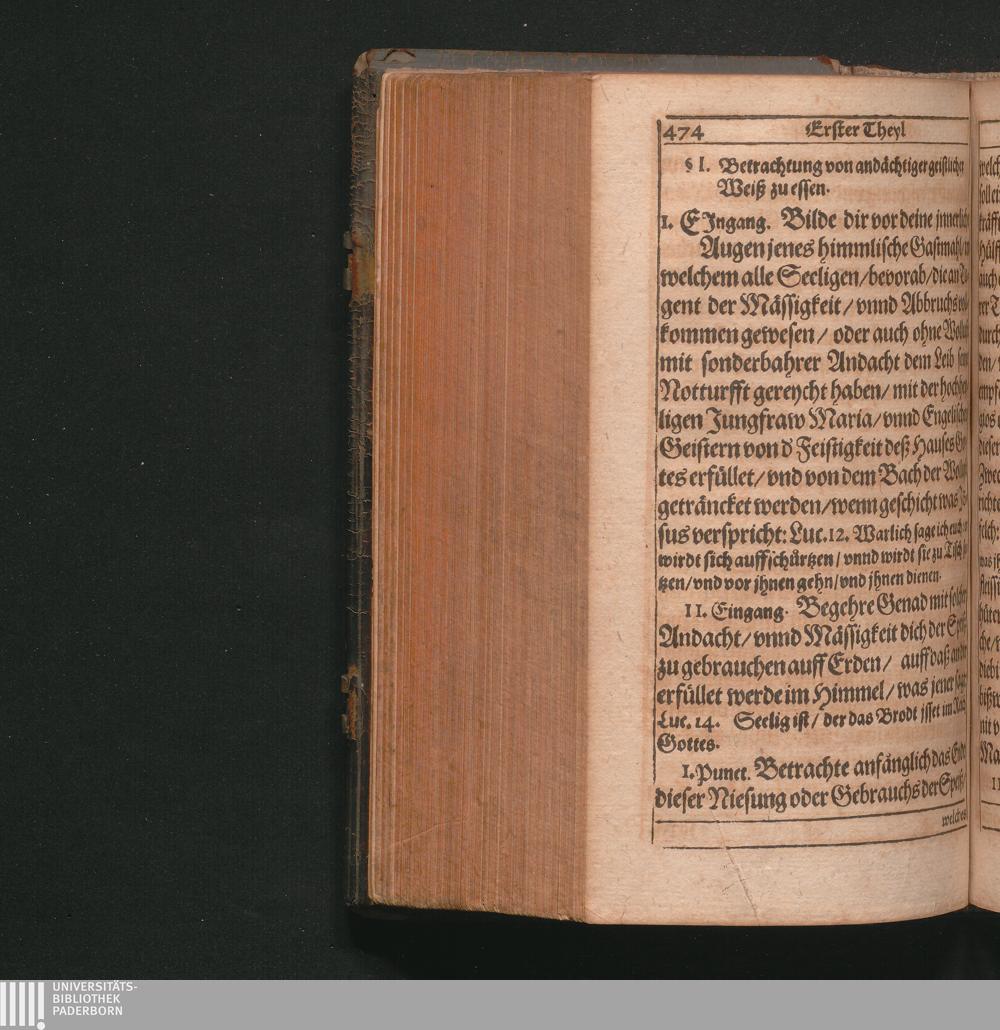 474 Erster Theyl
§ I. Betrachtung von andächtiger geistlicher
Weiß zu essen.
I. EJngang. Bilde dir vor deine jnnerliche
Augen jenes himmlische Gastmahl an
welchem alle Seeligen / bevorab / die an Tu-
gent der Mässigkeit / vnnd Abbruchs vol-
kommen gewesen / oder auch ohne Wollust
mit sonderbahrer Andacht dem Leib seine
Notturfft gereycht haben / mit der hochhey-
ligen Jungfraw Maria / vnnd Engelischen
Geistern von d' Feistigkeit deß Hauses Got-
tes erfüllet / vnd von dem Bach der Wollust
geträncket werden / wenn geschicht was Je-
sus verspricht: Luc. 12. Warlich sage ich euch er
wirdt sich auffschürtzen / vnnd wirdt sie zu Tisch se-
tzen / vnd vor jhnen gehn / vnd jhnen dienen.
II. Eingang. Begehre Genad mit solcher
Andacht / vnnd Mässigkeit dich der Speiß
zu gebrauchen auff Erden / auff daß an dir
erfüllet werde im Himmel / was jener sagt
Luc. 14. Seelig ist / der das Brodt jsset im Reich
Gottes.
I. Punct. Betrachte anfänglich das Endt
dieser Niesung oder Gebrauchs der Speiß /
welches
UNIVERSITÄTS-
BIBLIOTHEK
PADERBORN